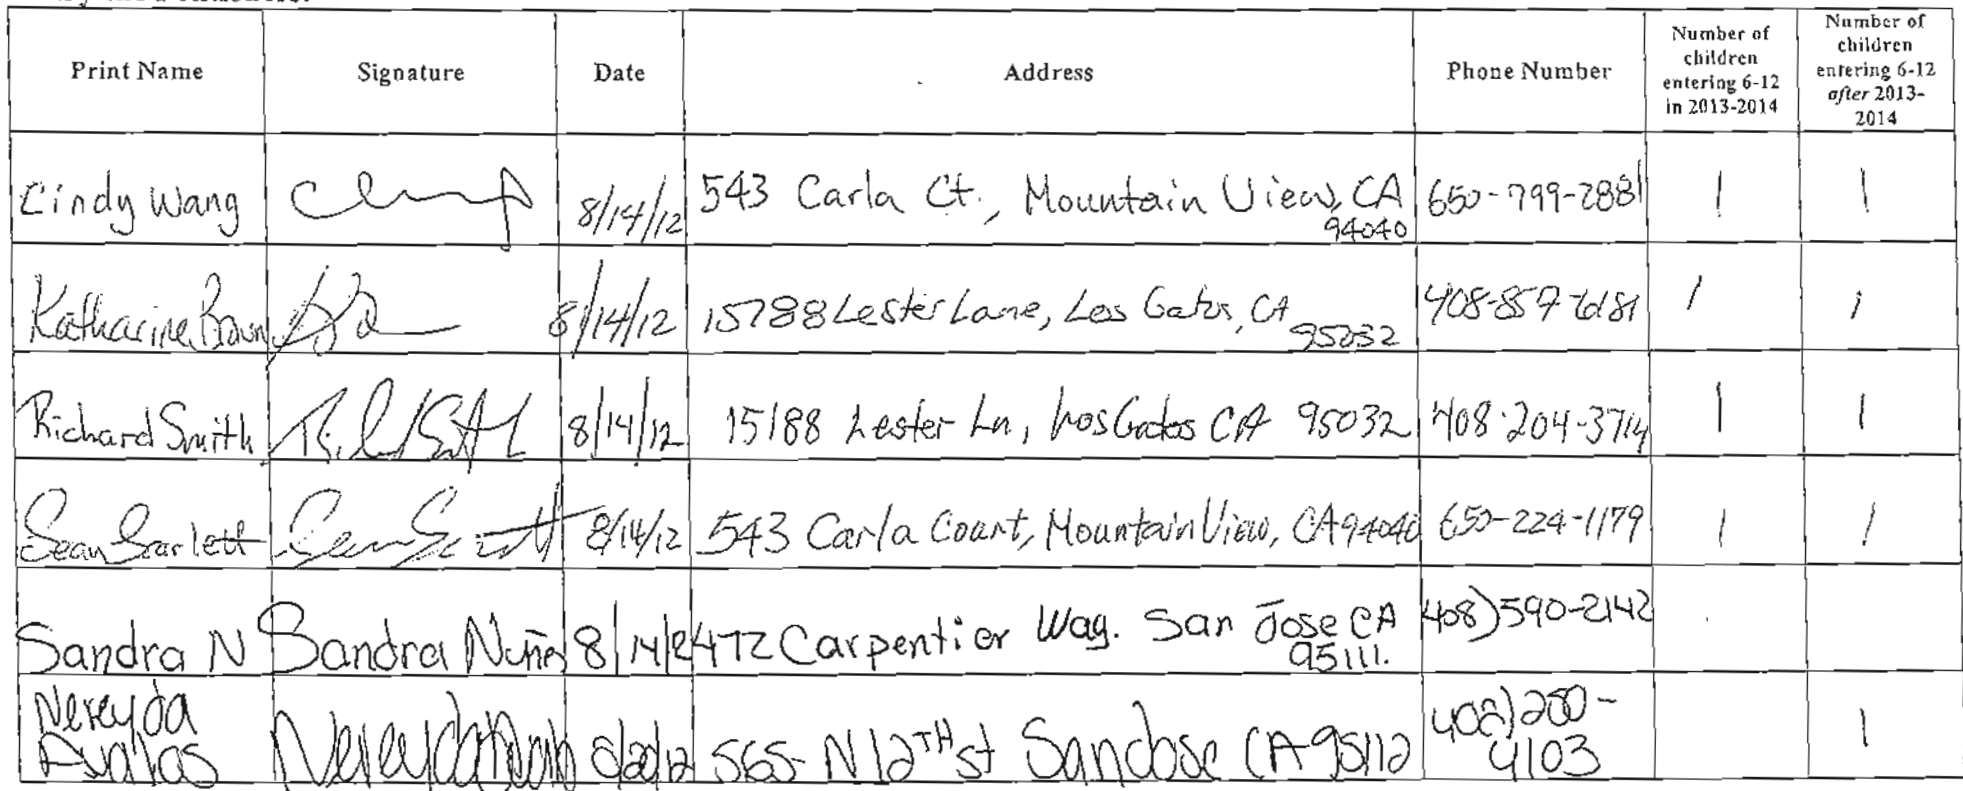 Print Name Signature Date Address Phone Number Number of children entering 6-12 in 2013-2014 Number of children entering 6-12 after 2013-2014
Cindy Wang 8/14/12 543 Carla Ct., Mountain View, CA 94040 650-799-2881 1 1
Katharine 8/14/12 15788 Lester Lane, Los Gatos, CA 95032 408-857-6181 1 1
Richard Smith 8/14/12 15188 Lester Ln, Los Gatos CA 95032 408-204-3714 1 1
Sean Scarlett 8/14/12 543 Carla Court, Mountain View, CA 94040 650-224-1179 1 1
Sandra N Sandra 8/14/12 472 Carpentier Way. San Jose CA 95111. 408)590-2142
Nereyda Avalos 565 N 12TH st San Jose CA 95112 4103 1